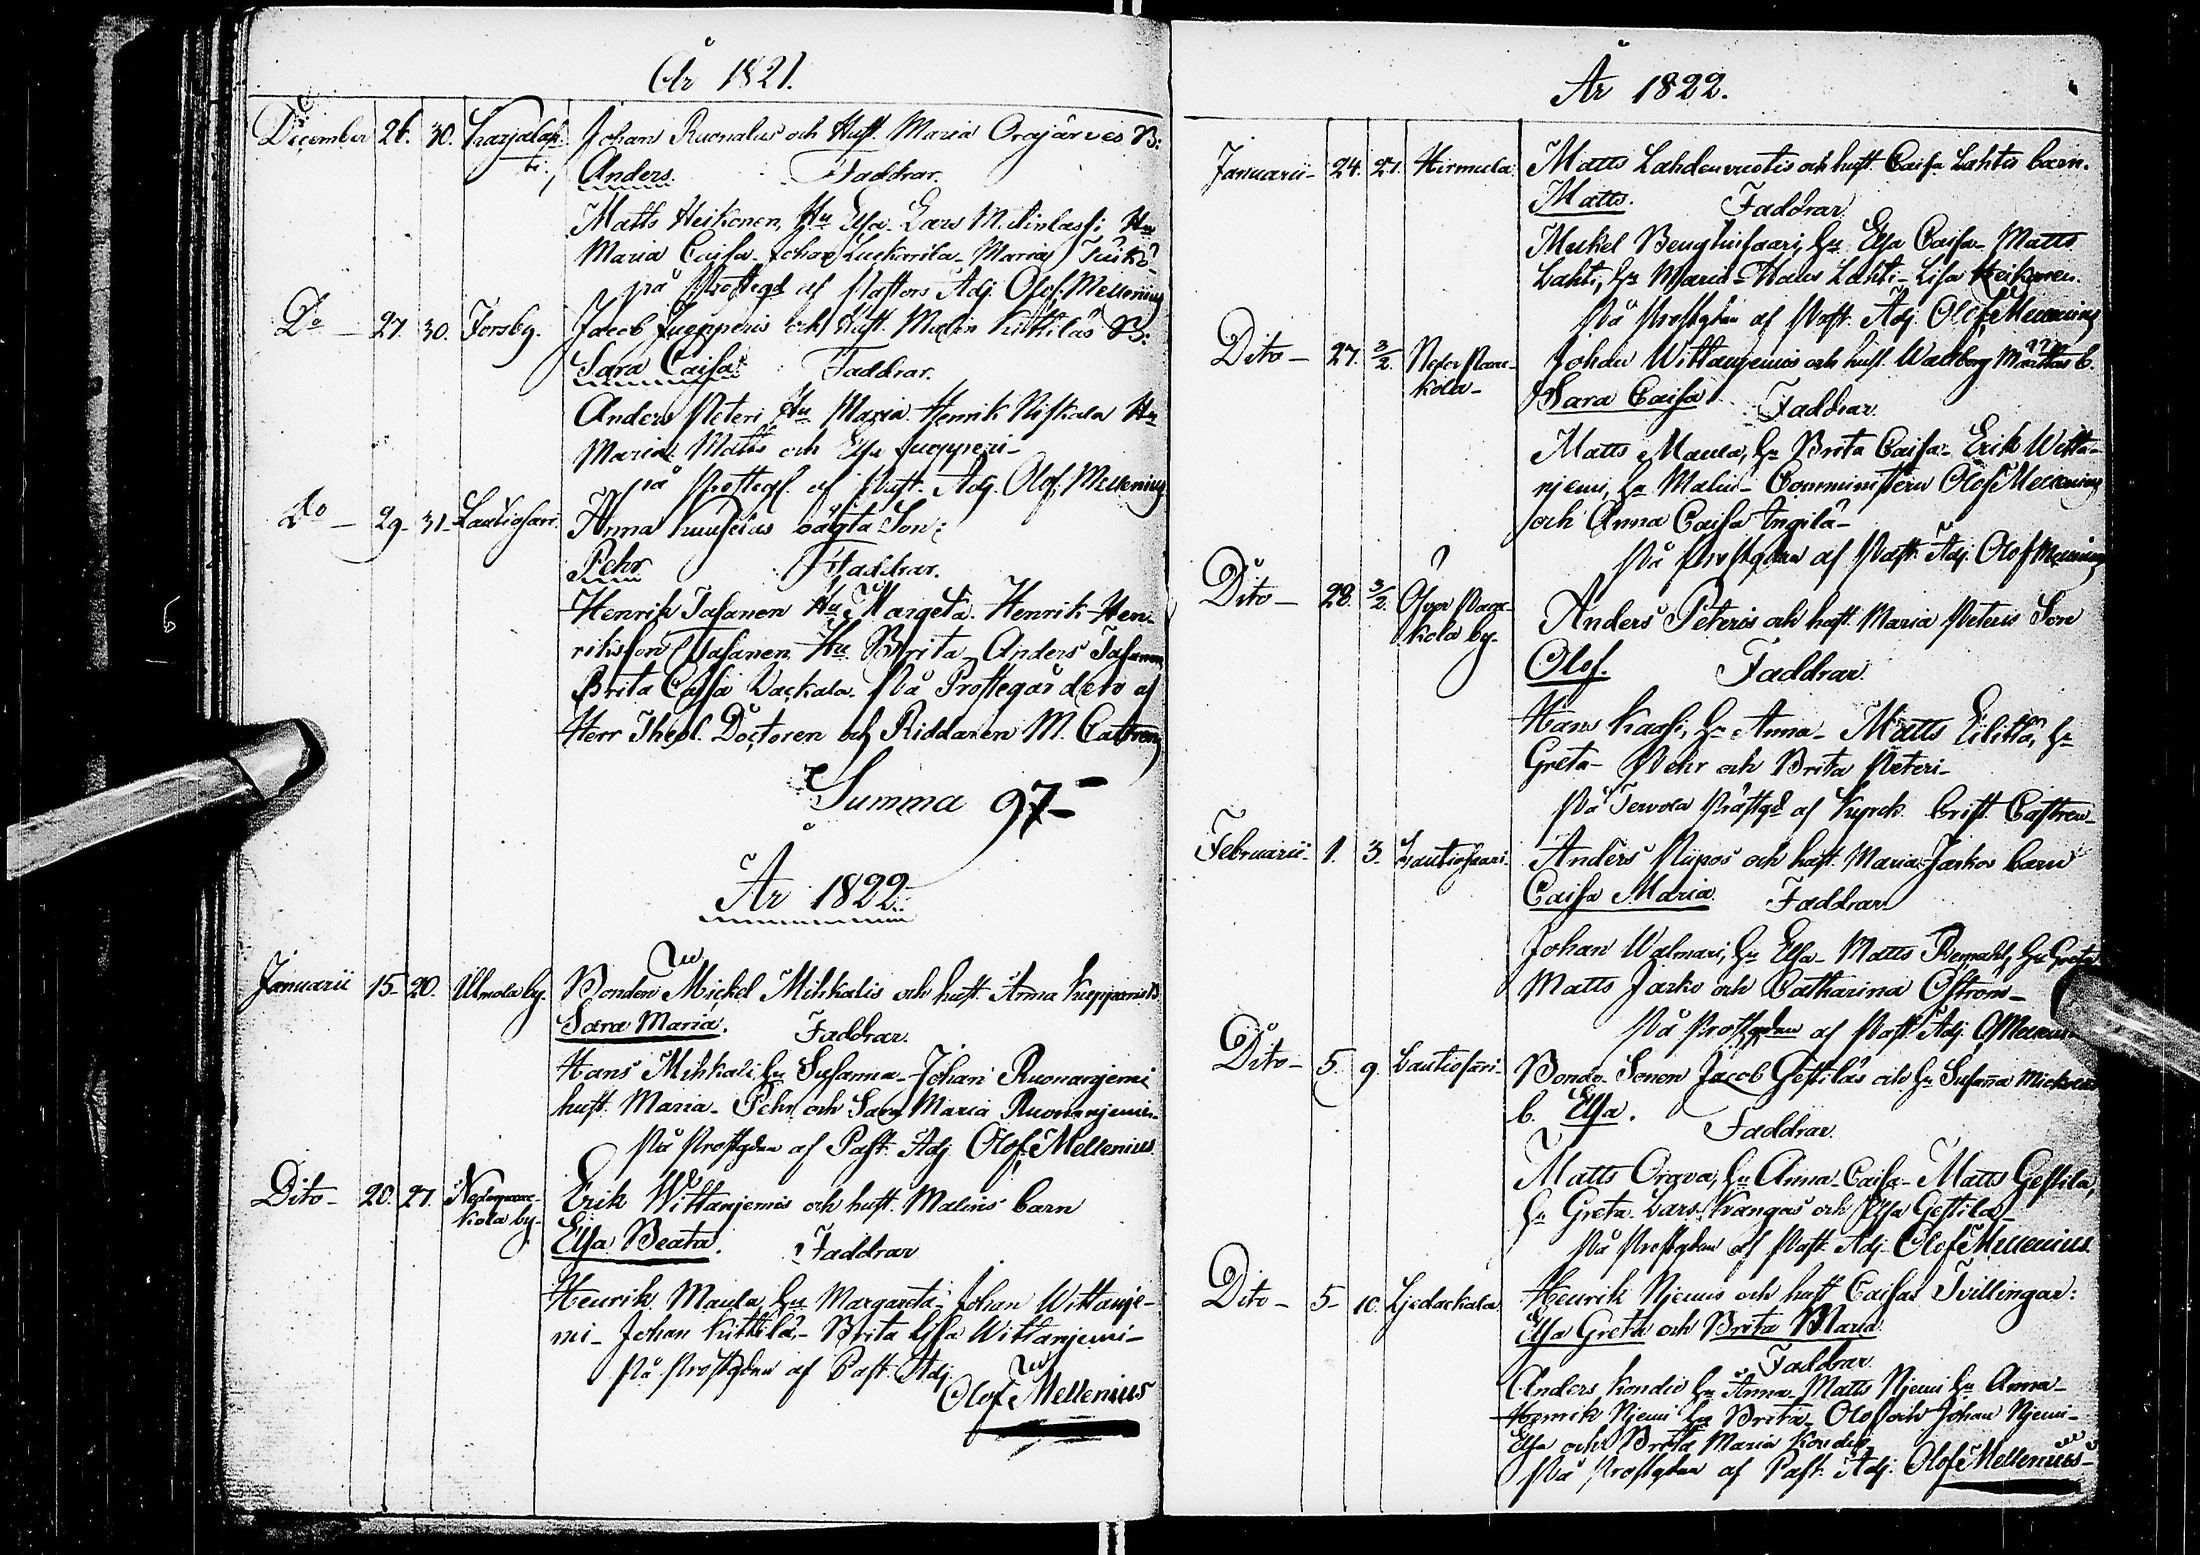 År 1821.
December 26. 30. Karjalah-
ti. Johan Ruonalas och Hust. Maria Orajärvis B:
Anders. Faddrar.
Matts Heikonen, Hu Elsa. Lars Matinlassi Hu
Maria Caisa. Johan Maria
på Prosteg af Pastors Adj. Olof Mellenius
Do 27. 30. Forsby. Jacob Juopperis och Hust. Malin Kittiläs B:
Sara Caisa Faddrar.
Anders Peteri Hu Maria. Henrik Niskala Hu
Maria. Matts och Elsa Juopperi
på Prosteg. af Past. Adj. Olof Mellenius
Do 29. 31. Lautiosari. Anna oägta Son:
Pehr Faddrar.
Henrik Tasanen Hu Margeta. Henrik Hen-
riksson Tasanen Hu Brita. Anders Tasanen
Brita Caisa Vackala. På Prostegården af
Herr Theol. Doctoren och Riddaren M. Castren
Summa 97
År 1822
Januarii 15. 20. Ulmola by. Bonden Mickel Mihkalis och hust. Anna B
Sara Maria. Faddrar.
Hans Mihkali hu Susanna. Johan Ruonanjemi
hust. Maria. Pehr och Sara Maria Ruonanjemi.
På Prostgden af Past. Adj. Olof Mellenius
Dito 20. 27. Neder paa-
kola by. Erik Wittanjemis och hust. Malins barn
Elsa Beata. Faddrar
Henrik Maula, hu Margareta. Johan Wittanje-
mi. Johan Kittilä. Brita Lisa Wittanjemi
På Prostgden af Past. Adj.
Olof Mellenius
År 1822.
Januarii 24. 27. Hirmula. Matts Lahdenvuotis och hust. Caisa Lahtis barn.
Matts. Faddrar
Mickel hu Elsa Caisa. Matts
Lahti, hu Maria. Lahti. Lisa Heikonen.
På Prostgden af Past. Adj. Olof Mellenius
Dito 27. 3/2. Neder Paa-
kola Johan Wittanjemis och hust. Walborg b.
Sara Caisa. Faddrar
Matts Maula, hu Brita Caisa. Erik Witta-
njemi, hu Malin. Communistern Olof Mellenius
och Anna Caisa Ingilä
På Prostgden af Past. Adj. Olof Mellenius
Dito 28. 3/2. Öfver Paa-
kola by. Anders Peteris och hust. Maria Peteris Son
Olof. Faddrar
Hans Kaasi, hu Anna. Matts Eilittä, hu
Greta. Pehr och Brita Peteri
På Tervola Prästgd af Kyrck. Crist. Castren
Februarii 1. 3. Lautiosaari Anders Piipos och hust. Maria Jarkos barn
Caisa Maria. Faddrar
Johan Walmari, hu Elsa. Matts hu Greta
Matts Jarko och Catharina Öström
På Prostgden af Past. Adj. O Mellenius
Dito 5. 9. Lautiosari Bonde Sonen Jacob Gestiläs och hu Susanna
b. Elsa. Faddrar.
Matts Orava, hu Anna Caisa. Matts Gestilä,
hu Greta. Lars Kangas och Elsa Gestilä
På Prostgden af Past. Adj. Olof Mellenius
Dito 5. 10. Liedackala Henrik Njemis och hust Caisas Tvillingar:
Elsa Greta och Brita Maria.
Faddrar
Anders Kondio hu Anna. Matts Njemi hu Anna
Henrik Njemi hu Brita. Olof och Johan Njemi
Elsa och Brita Maria Kondio
På Prostgden af Past. Adj. Olof Mellenius